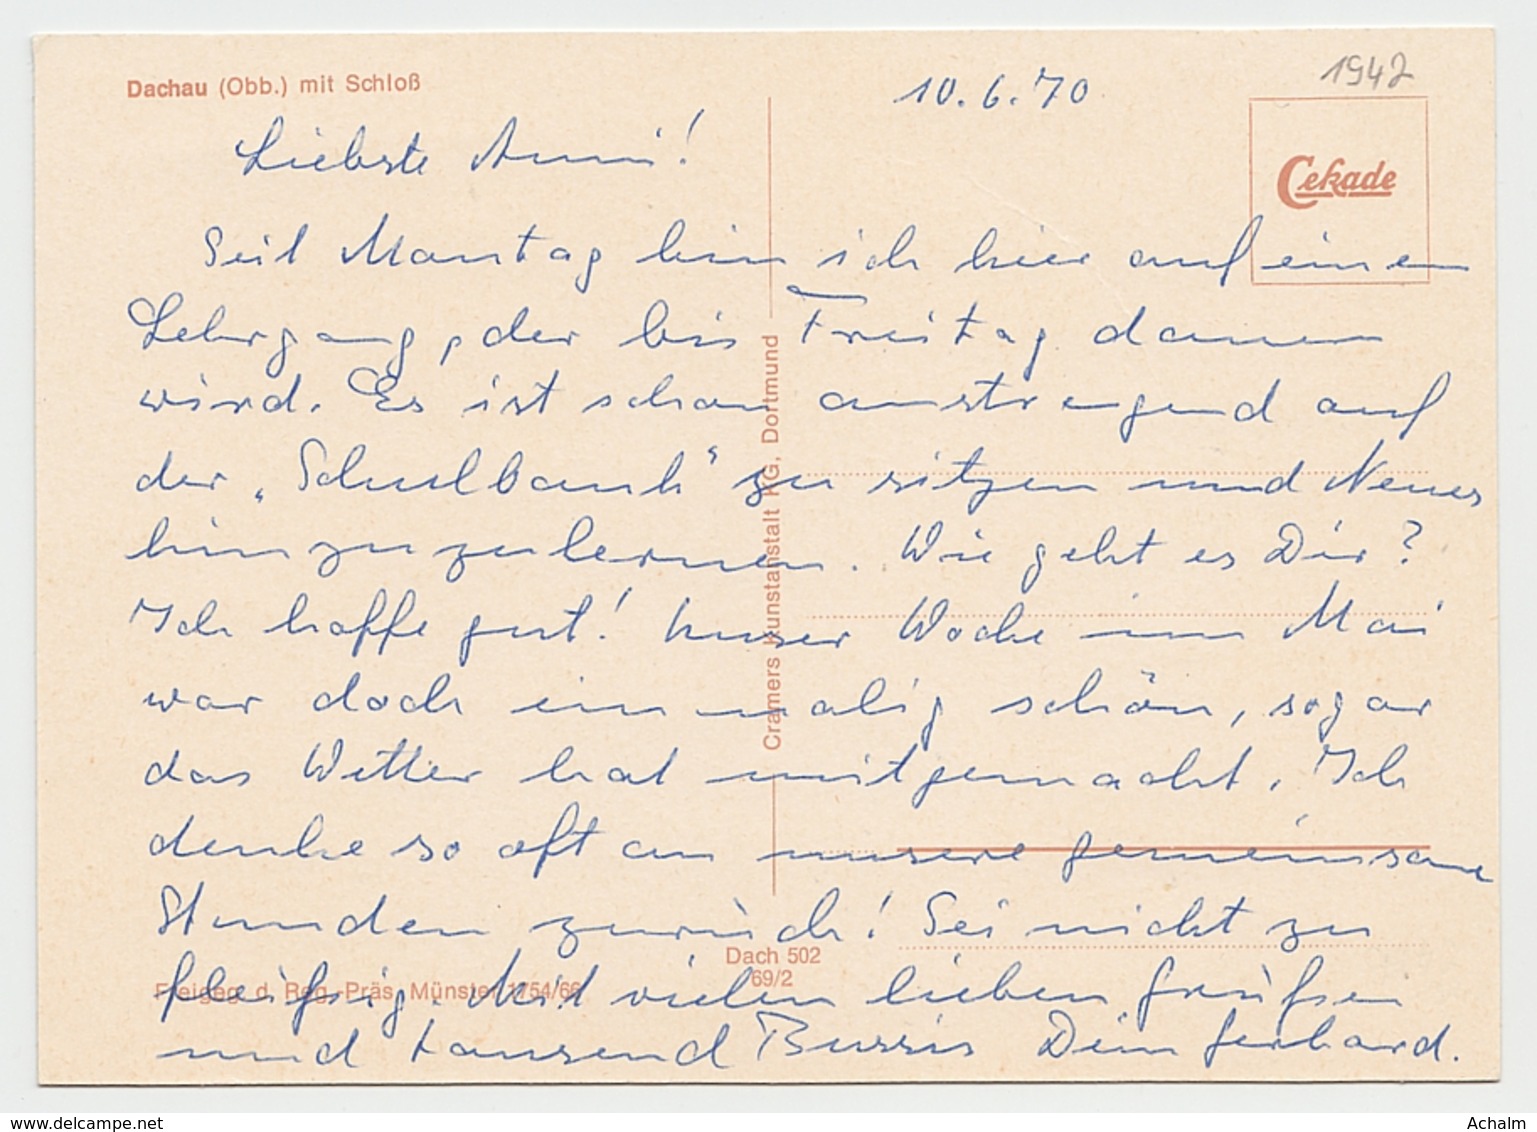 Dachau (Obb.) mit Schloß
10.6.70
1942
Cekade
Liebste Anni!
Seit Montag bin ich hier auf einem
Lehrgang, der bis Freitag dauern
wird. Es ist schon anstrengend auf
der „Schulbank“ zu sitzen und Neues
hinzuzulernen. Wie geht es Dir?
Ich hoffe gut! Unser Woche im Mai
war doch einmalig schön, sogar
das Wetter hat mitgemacht. Ich
denke so oft an unsere gemeinsame
Stunden zurück! Sei nicht zu
fleißig. Mit vielen lieben Grüßen
und tausend Bussis Dein Gerhard.
Cramers Kunstanstalt KG, Dortmund
Dach 502
69/2
Freigeg. d. Reg.-Präs. Münster 1754/66
delcampe.net
Achalm